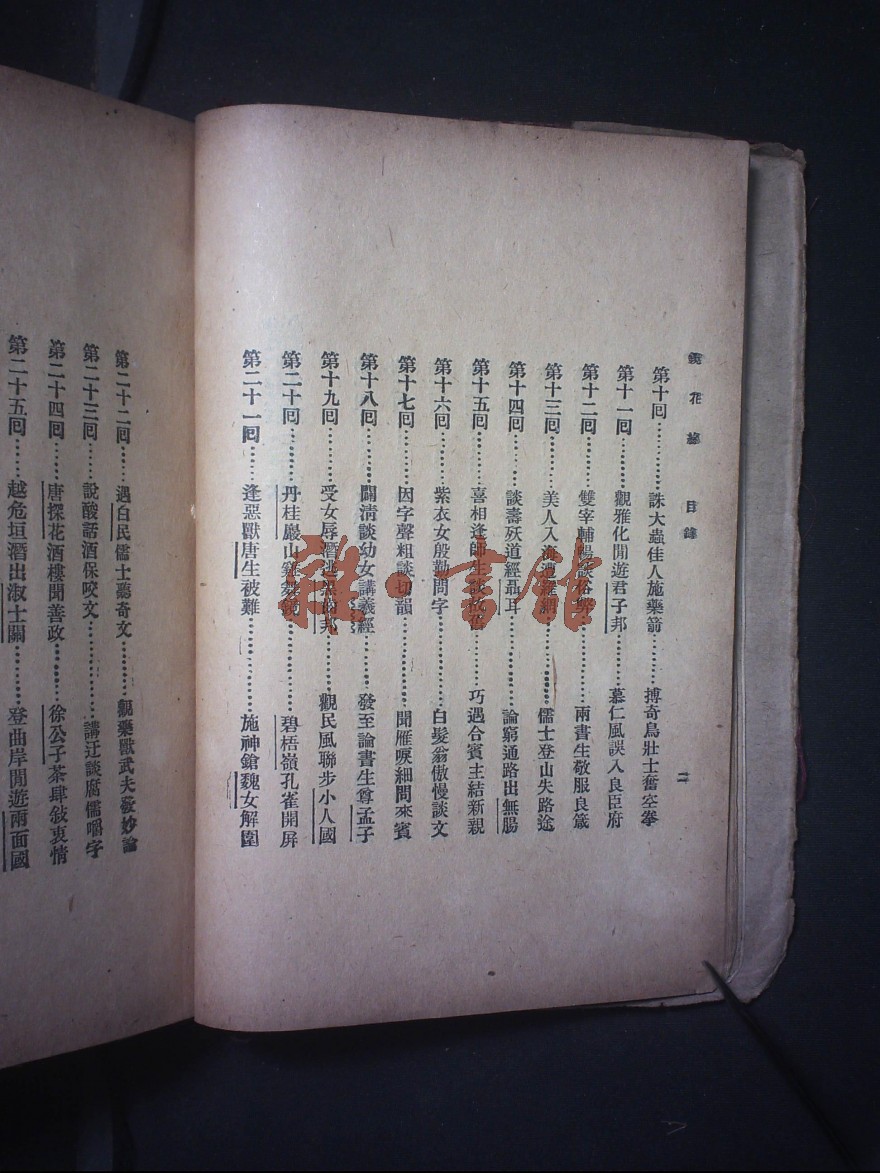 鏡花緣 目錄 二
第十回…………誅大蟲佳人施藥箭………搏奇鳥壯士奮空拳
第十一回………觀雅化閒遊君子邦………慕仁風誤入良臣府
第十二回………雙宰輔暢談俗弊………兩書生敬服良箴
第十三回………美人入海遭羅網………儒士登山失路途
第十四回………談壽殀道經聶耳………論窮通路出無腸
第十五回………喜相逢師生談故舊………巧遇合賓主結新親
第十六回………紫衣女殷勤問字………白髮翁傲慢談文
第十七回………因字聲粗談切韻………聞雁唳細問來賓
第十八回………闢清談幼女講羲經………發至論書生尊孟子
第十九回………受女辱潛逃黑齒邦………觀民風聯步小人國
第二十回………丹桂巖山雞舞鏡………碧梧嶺孔雀開屏
第二十一回……逢惡獸唐生被難………施神鎗魏女解圍
第二十二回……遇白民儒士聽奇文………觀藥獸武夫發妙論
第二十三回……說酸話酒保咬文………講迂談腐儒嚼字
第二十四回……唐探花酒樓聞善政………徐公子茶肆敍衷情
第二十五回……越危垣潛出淑士關………登曲岸閒遊兩面國
雜·書館